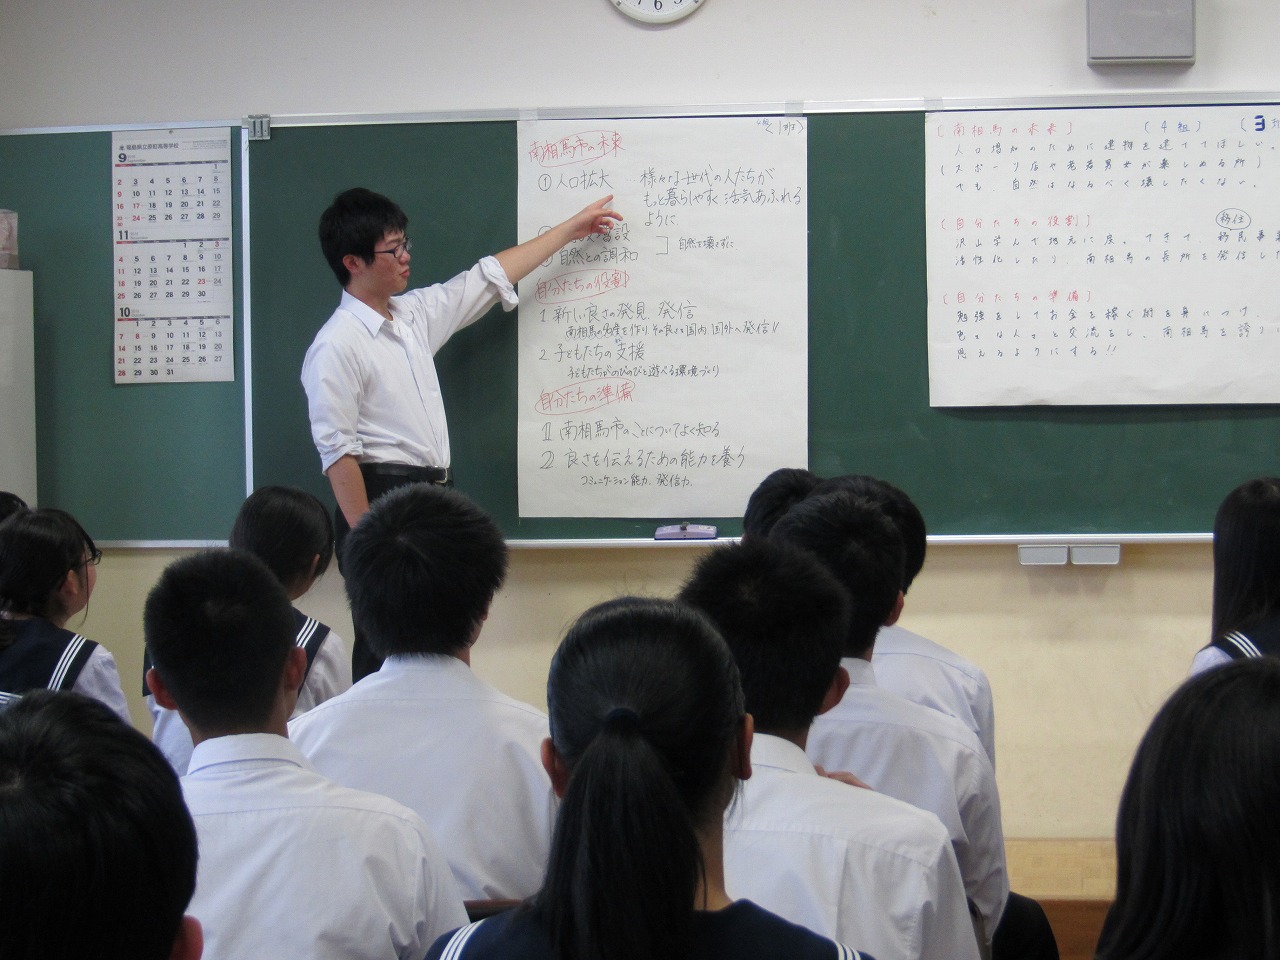 福島県立原町高等学校
9
11
10
1班
南相馬市の未来
①人口拡大
様々な世代の人たちが
もっと暮らしやすく活気あふれる
ように
増設
自然との調和
自然を壊さずに
自分たちの役割
1 新しい良さの発見、発信
南相馬の名産を作り、その良さを国内、国外へ発信!!
2 子どもたちの支援
子どもたちがのびのびと遊べる環境づくり
自分たちの準備
1 南相馬市のことについてよく知る
2 良さを伝えるための能力を養う
コミュニケーション能力、発信力、
[南相馬の未来] (4組) (3
人口増加のために建物を建ててほしい。
(スポーツ店や老若男女が楽しめる所)
でも、自然はなるべく壊したくない。
[自分たちの役割]
移住
沢山学んで地元に戻ってきて移民事業
活性化したり、南相馬の長所を発信した
[自分たちの準備]
勉強をしてお金を稼ぐ術を身につけ、
色々な人々と交流をし、南相馬を誇り
思えるようにする!!